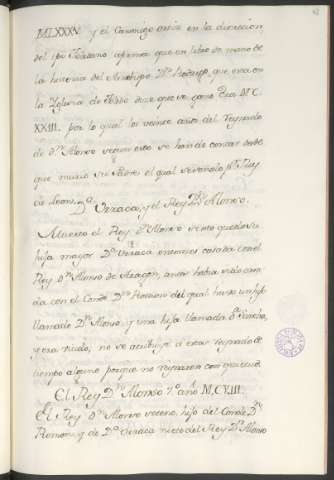 MLXXXV. y el Canonigo ortiz en la direccion
del pro afirma que en libro de mano de
la historia del Arzobispo Dn Rodrigo, que era en
la Yglesia de Toledo dice que se gano Era M.C.
XXIII. por lo qual los veinte años del Reynado
de Dn Alonso segun esto se han de contar desde
que murio su Padre el qual
de Leon.
Da. Urraca, y el Rey Dn Alonso.
Muerto el Rey Dn Alonso sexto quedo su
hija mayor Da Urraca entonces casada con el
Rey Dn Alonso de Aragon, antes habia sido casa
da con el Conde Dn Ramon del qual hubo un hijo
llamado Dn Alonso, y una hija llamada Da Sancha,
y era viuda, no se atribuye à estos Reynado de
tiempo alguno porque no reynaron con quietud.
El Rey Dn Alonso 7o. año M.CVIII.
El Rey Dn Alonso seteno, hijo del Conde Dn
Ramon, y de Da Urraca nieto del Rey Dn Alonso